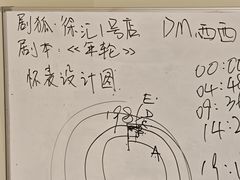 剧狐·徐汇1号店 DM.西西
剧本:《年轮》
怀表设计图
00:00
04:4
09:3
14:2
198
E.
D
A